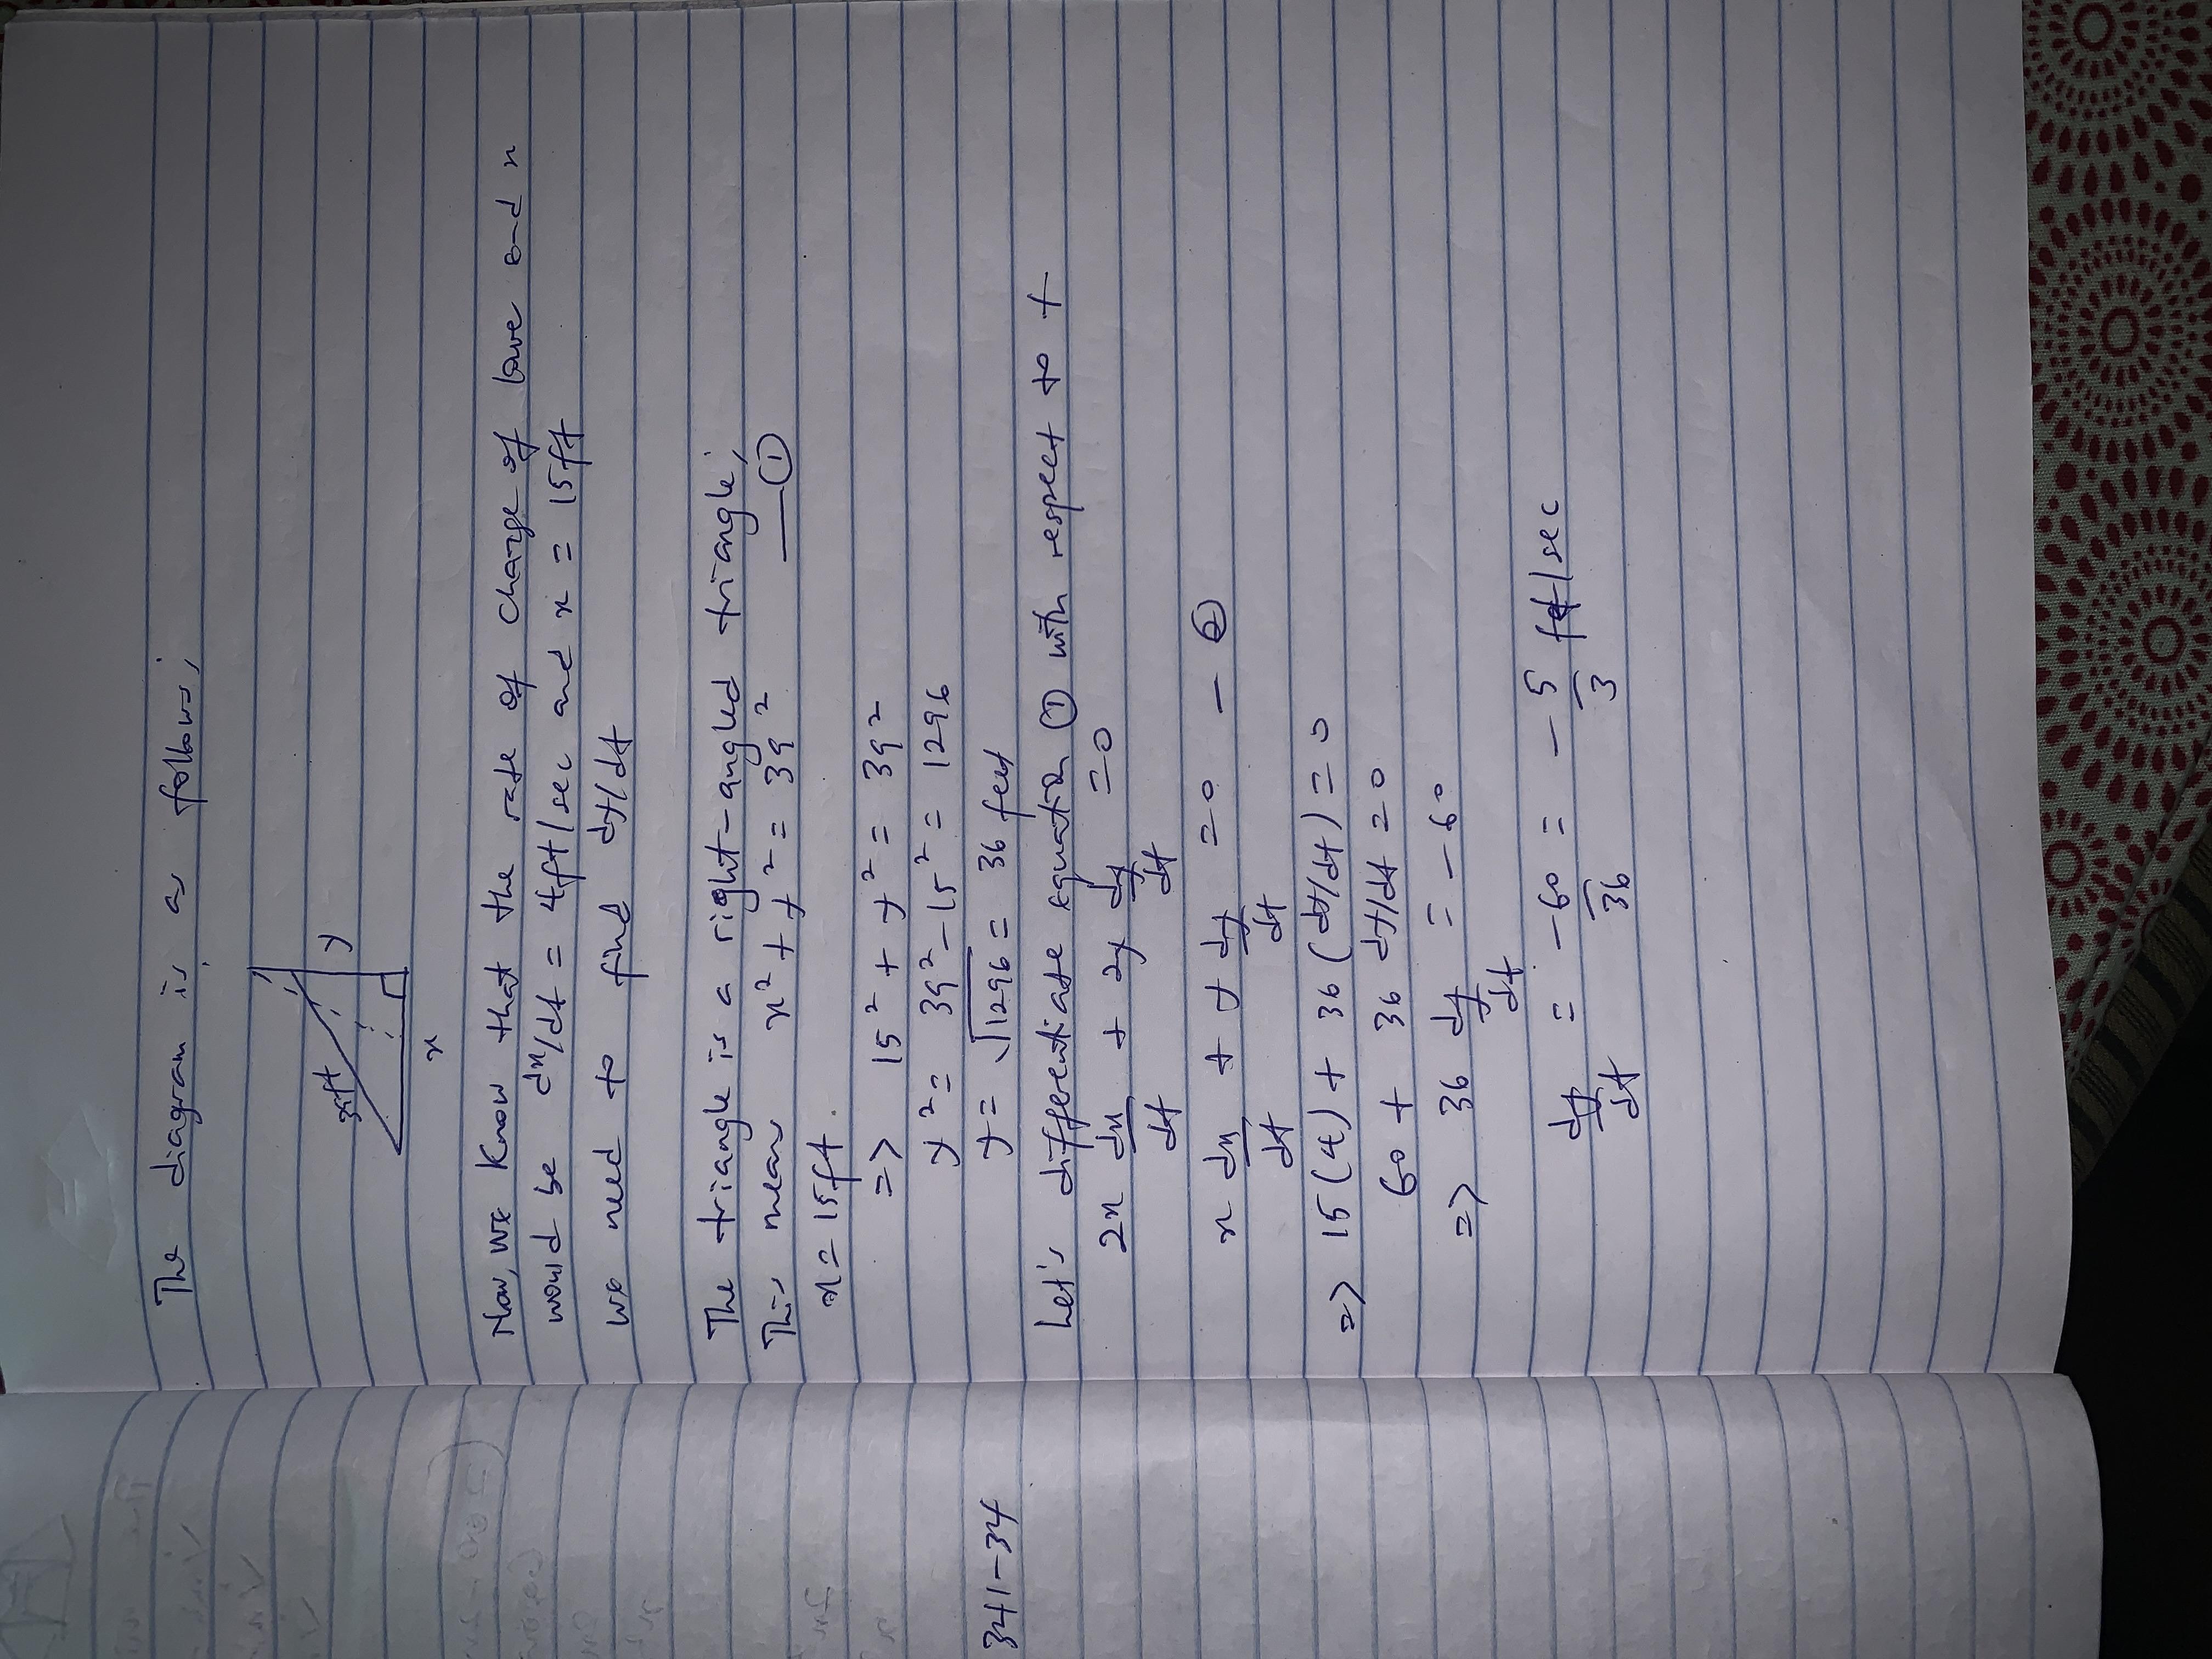 The diagram is as follows;
39ft
y
x
Now, we know that the rate of change of base end x
would be dx/dt = 4ft/sec and x = 15ft
we need to find dy/dt
The triangle is a right-angled triangle;
This means x² + y² = 39² —①
x = 15ft
=> 15² + y² = 39²
y² = 39² - 15² = 1296
y = √1296 = 36 feet
Let's differentiate equation ① with respect to t
2x dx/dt + 2y dy/dt = 0
x dx/dt + y dy/dt = 0 - ②
=> 15(4) + 36(dy/dt) = 0
60 + 36 dy/dt = 0
=> 36 dy/dt = -60
dy/dt = -60/36 = -5/3 ft/sec
341-34